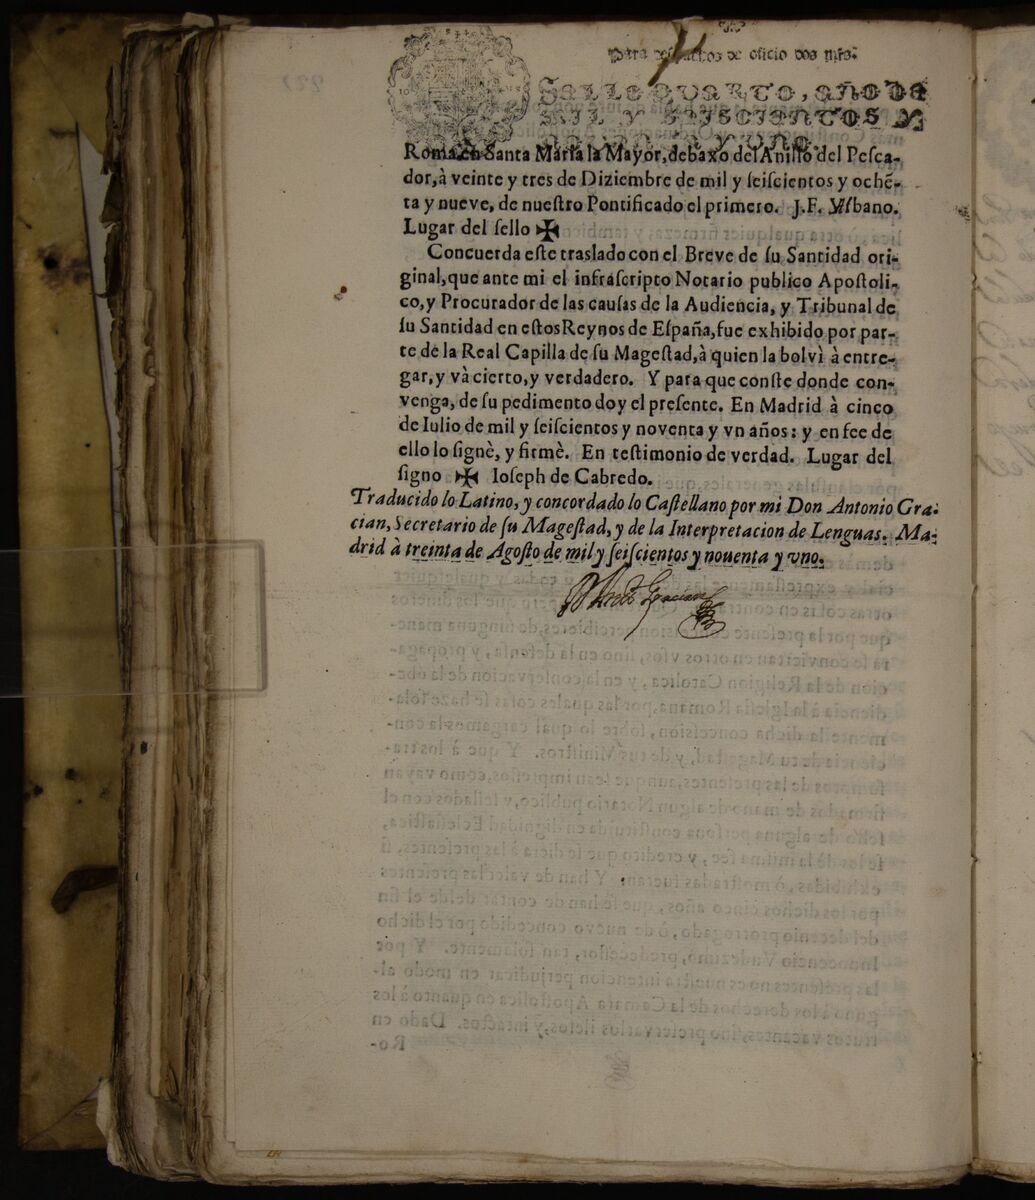 Para despachos de oficio dos mrs.
SELLO QVARTO, AÑO DE
MIL Y SEISCIENTOS Y
NOVENTA Y VNO.
Roma en Santa Maria la Mayor, debaxo del Anillo del Peſca-
dor, à veinte y tres de Diziembre de mil y ſeiſcientos y ochẽ-
ta y nueve, de nueſtro Pontificado el primero. J.F. Albano.
Lugar del ſello ✠
Concuerda eſte traslado con el Breve de ſu Santidad ori-
ginal, que ante mi el infraſcripto Notario publico Apoſtoli-
co, y Procurador de las cauſas de la Audiencia, y Tribunal de
ſu Santidad en eſtos Reynos de Eſpaña, fue exhibido por par-
te de la Real Capilla de ſu Mageſtad, à quien la bolvì à entre-
gar, y và cierto, y verdadero. Y para que conſte donde con-
venga, de ſu pedimento doy el preſente. En Madrid à cinco
de Iulio de mil y ſeiſcientos y noventa y vn años: y en fee de
ello lo ſignè, y firmè. En teſtimonio de verdad. Lugar del
ſigno ✠ Ioſeph de Cabredo.
Traducido lo Latino, y concordado lo Caſtellano por mi Don Antonio Gra-
cian, Secretario de ſu Mageſtad, y de la Interpretacion de Lenguas. Ma-
drid à treinta de Agoſto de mil y ſeiſcientos y nouenta y vno.
D Anto Gracian